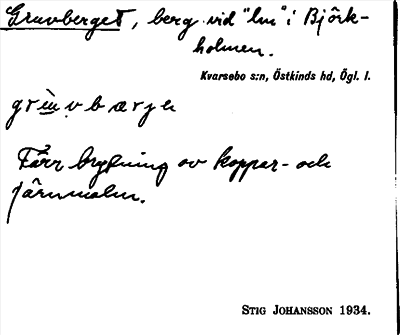 Gruvberget, berg vid "lm" i Björk-
holmen.
Kvarsebo s:n, Östkinds hd, Ögl. l.
Förr brytning av koppar- och
järnmalm.
STIG JOHANSSON 1934.